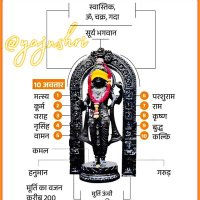 स्वास्तिक,
ॐ, चक्र, गदा
सूर्य भगवान
@yajushri
10 अवतार
मत्स्य 1
कूर्म 2
वराह 3
नृसिंह 4
वामन 5
6 परशुराम
7 राम
8 कृष्ण
9 बुद्ध
10 कल्कि
कमल
हनुमान
गरुड़
मूर्ति का वजन
करीब 200
मूर्ति ऊंची